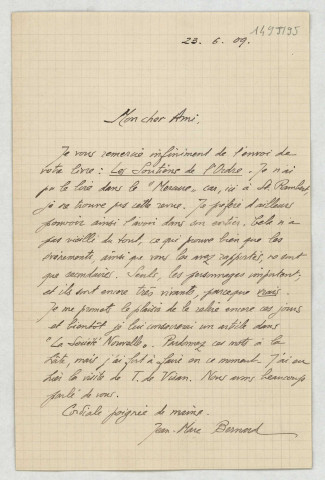 1495195
23. 6. 09.
Mon cher Ami,
Je vous remercie infiniment de l'envoi de
votre livre : Les Soutiens de l'Ordre. Je n'ai
pu le lire dans le "Mercure" car, ici à St Rambert
je ne trouve pas cette revue. Je préfère d'ailleurs
pouvoir ainsi l'avoir dans son entier. Cela n'a
pas vieilli du tout, ce qui prouve bien que les
événements, ainsi que vous les avez rapportés, ne sont
que secondaires. Seuls, les personnages importent,
et ils sont encore très vivants, parce que vrais.
Je me promets le plaisir de le relire encore ces jours
et bientôt je lui consacrerai un article dans
"La Société Nouvelle". Pardonnez ces mots à la
hâte, mais j'ai fort à faire en ce moment. J'ai eu
hier la visite de T. de Visan. Nous avons beaucoup
parlé de vous.
Cordiale poignée de mains.
Jean-Marc Bernard